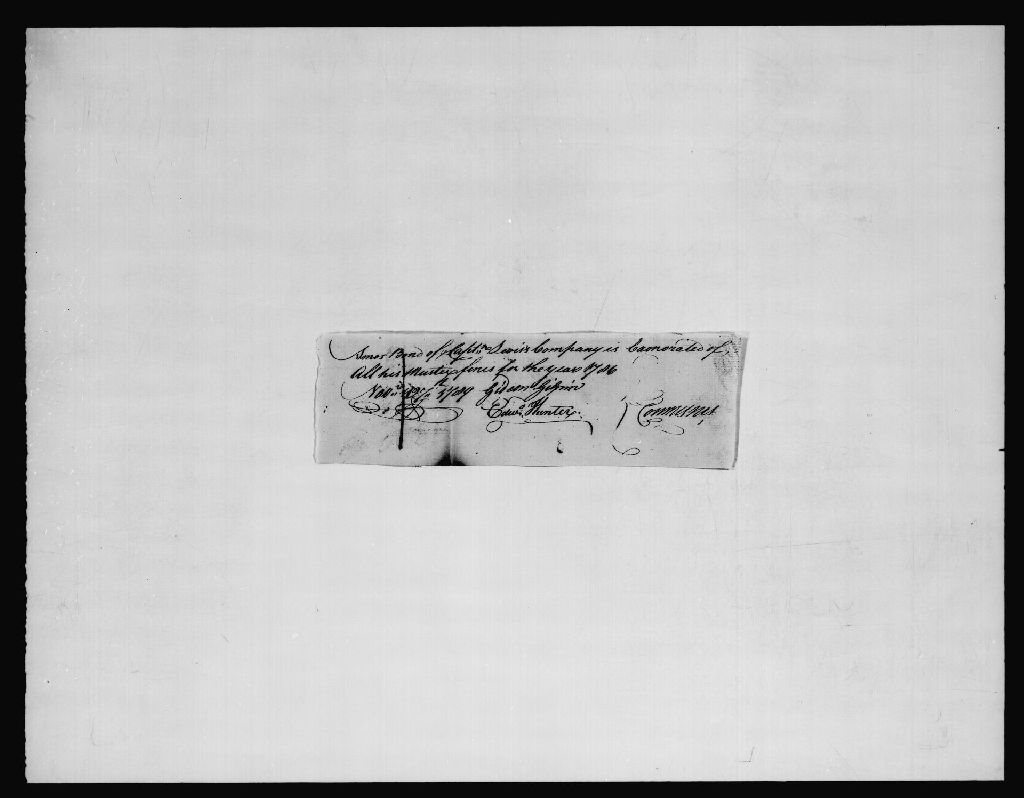 Amor Bond of Captn. Lewis's Company is Exmorated of
All his Muster fines for the year 1786
Novr. 1787 Gideon Gilpin
Edwd. Hunter Commissrs